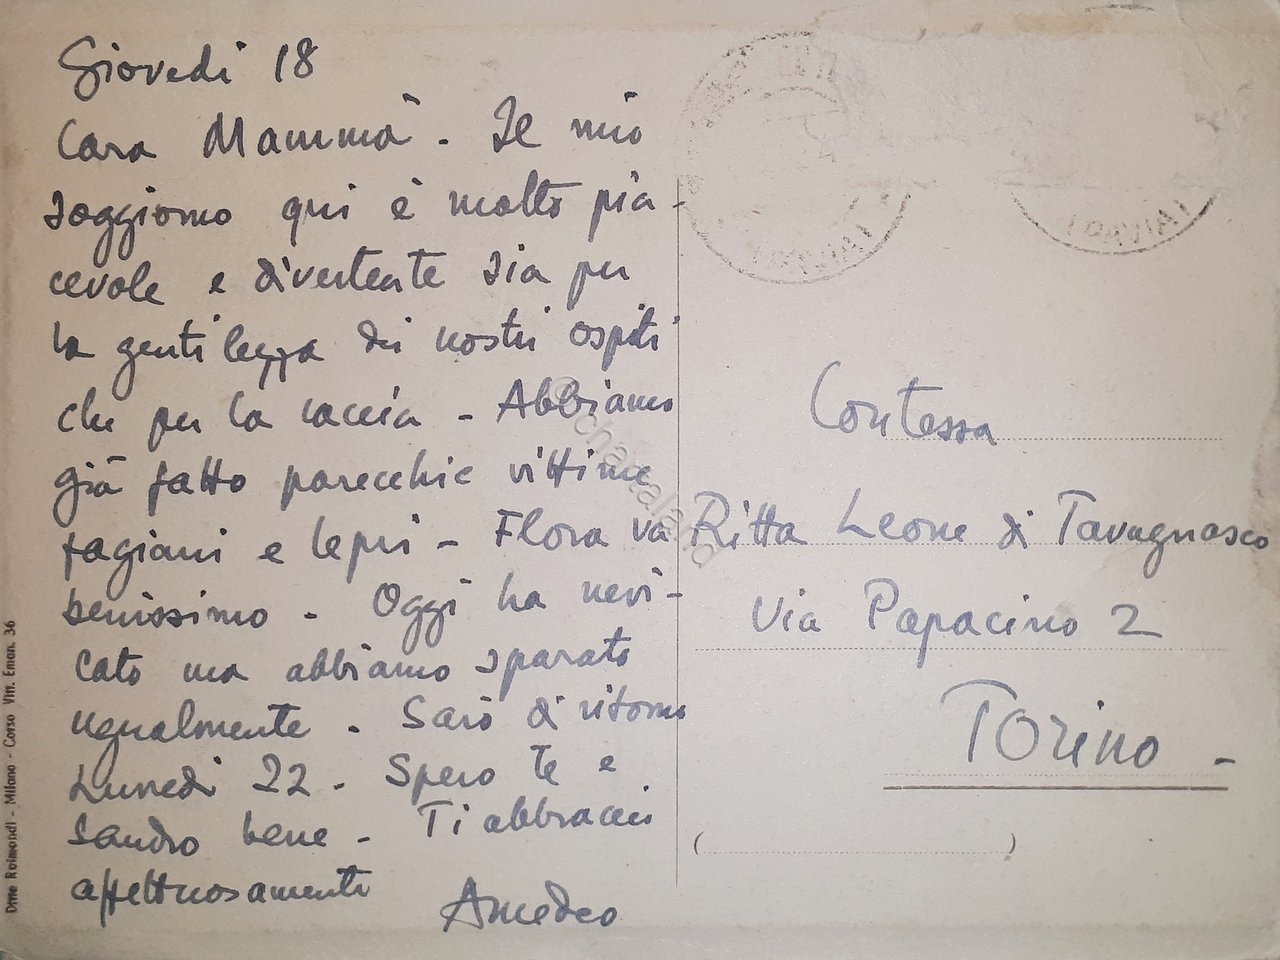 Giovedi 18
Cara Mammà. Il mio
soggiorno qui è molto pia-
cevole e divertente sia per
la gentilezza dei nostri ospiti
che per la caccia - Abbiamo
già fatto parecchie vittime
fagiani e lepri - Flora va
benissimo. Oggi ha nevi-
cato ma abbiamo sparato
ugualmente. Sarò di ritorno
Lunedì 22. Spero te e
Sandro bene - Ti abbracci
affettuosamente
Amedeo
Contessa
Ritta Leone di Tavagnasco
Via Papacino 2
TOrino -
(PAVIA)
(PAVIA)
Ditta Raimondi - Milano - Corso Vitt. Eman. 36
© chartaland